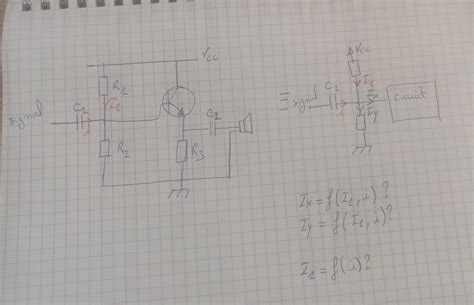 Vcc
R1
I1
signal
C1
i
R2
C2
R3
Vcc
I1
signal
C1
i
Ix
Iy
circuit
Ix = f(I1, i)?
Iy = f(I1, i)?
I1 = f(i)?